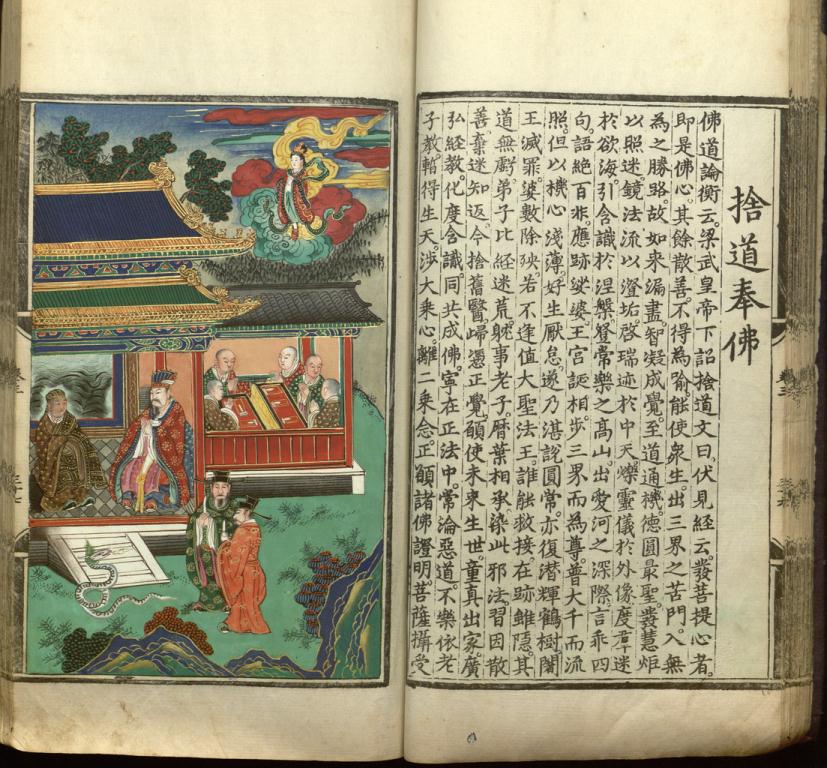 捨道奉佛
佛道論衡云。梁武皇帝下詔捨道文曰。伏見經云。發菩提心者。
即是佛心。其餘散善。不得為喻。能使衆生。出三界之苦門。入無
為之勝路。故如來漏盡。智凝成覺。至道通機。德圓最聖。發慧炬
以照迷。鏡法流以澄垢。啓瑞迹於中天。爍靈儀於外像。度羣迷
於欲海。引含識於涅槃。登常樂之高山。出愛河之深際。言乖四
句。語絕百非。應跡娑婆。王宮誕相。步三界而為尊。普大千而流
照。但以機心淺薄。好生厭怠。遂乃湛說圓常。亦復潛輝鶴樹。闍
王滅罪。婆數除殃。若不逢值大聖法王。誰能救接。在跡雖隱。其
道無虧。弟子比經迷荒。躭事老子。曆葉相承。染此邪法。習因散
善。棄迷知返。今捨舊醫。歸憑正覺。願使未來生世。童真出家。廣
弘經教。化度含識。同共成佛。寧在正法中。常淪惡道。不樂依老
子教。暫得生天。涉大乘心。離二乘念。正願諸佛證明。菩薩攝受